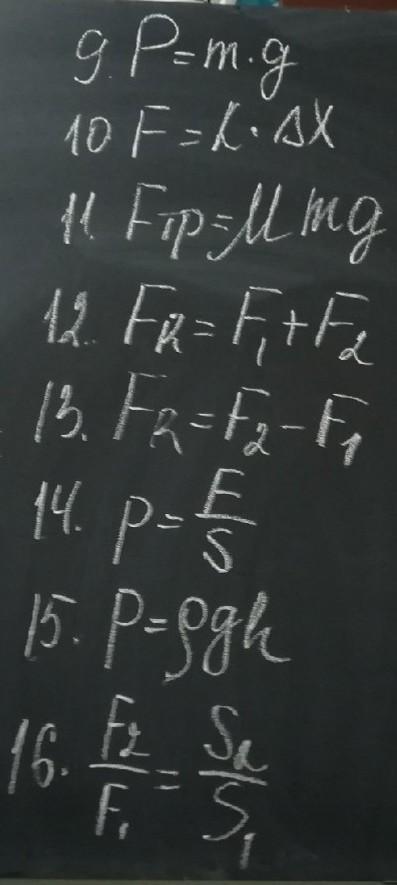 9. P=m·g
10 F=k·Δx
11. Fтр=μmg
12. FR=F₁+F₂
13. FR=F₂-F₁
14. p=F/S
15. p=ρgh
16. F₂/F₁=S₂/S₁